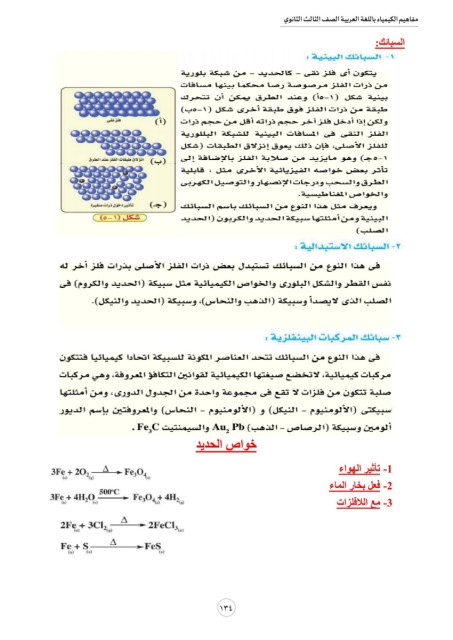 مفاهيم الكيمياء باللغة العربية الصف الثالث الثانوي
السبائك:
١- السبائك البينية :
يتكون أى فلز نقى - كالحديد - من شبكة بلورية
من ذرات الفلز مرصوصة رصا محكما بينها مسافات
بينية شكل (١-٥أ) وعند الطرق يمكن أن تتحرك
طبقة من ذرات الفلز فوق طبقة أخرى شكل (١-٥ب)
ولكن إذا أدخل فلز آخر حجم ذراته أقل من حجم ذرات
الفلز النقى فى المسافات البينية للشبكة البللورية
للفلز الأصلى، فإن ذلك يعوق إنزلاق الطبقات (شكل
١-٥جـ) وهو مايزيد من صلابة الفلز بالإضافة إلى
تأثر بعض خواصه الفيزيائية الأخرى مثل : قابلية
الطرق والسحب ودرجات الإنصهار والتوصيل الكهربى
والخواص المغناطيسية.
ويعرف مثل هذا النوع من السبائك باسم السبائك
البينية ومن أمثلتها سبيكة الحديد والكربون (الحديد
الصلب)
فلز نقى
(أ)
انزلاق طبقات الفلز عند الطرق
(ب)
(جـ)
شكل (١-٥)
٢- السبائك الاستبدالية :
فى هذا النوع من السبائك تستبدل بعض ذرات الفلز الأصلى بذرات فلز آخر له
نفس القطر والشكل البلورى والخواص الكيميائية مثل سبيكة (الحديد والكروم) فى
الصلب الذى لايصدأ وسبيكة (الذهب والنحاس)، وسبيكة (الحديد والنيكل).
٣- سبائك المركبات البينفلزية :
فى هذا النوع من السبائك تتحد العناصر المكونة للسبيكة اتحادا كيميائيا فتتكون
مركبات كيميائية، لاتخضع صيغتها الكيميائية لقوانين التكافؤ المعروفة، وهى مركبات
صلبة تتكون من فلزات لا تقع فى مجموعة واحدة من الجدول الدورى، ومن أمثلتها
سبيكتى (الألومنيوم - النيكل) و (الألومنيوم - النحاس) والمعروفتين بإسم الديور
ألومين وسبيكة (الرصاص - الذهب) Au₂ Pb والسيمنتيت Fe₃C .
خواص الحديد
1- تأثير الهواء
2- فعل بخار الماء
3- مع اللافلزات
3Fe + 2O₂(g) —Δ→ Fe₃O₄(s)
3Fe(s) + 4H₂O(v) —500°C→ Fe₃O₄(s) + 4H₂(g)
2Fe(s) + 3Cl₂(g) —Δ→ 2FeCl₃(s)
Fe(s) + S(s) —Δ→ FeS(s)
١٣٤